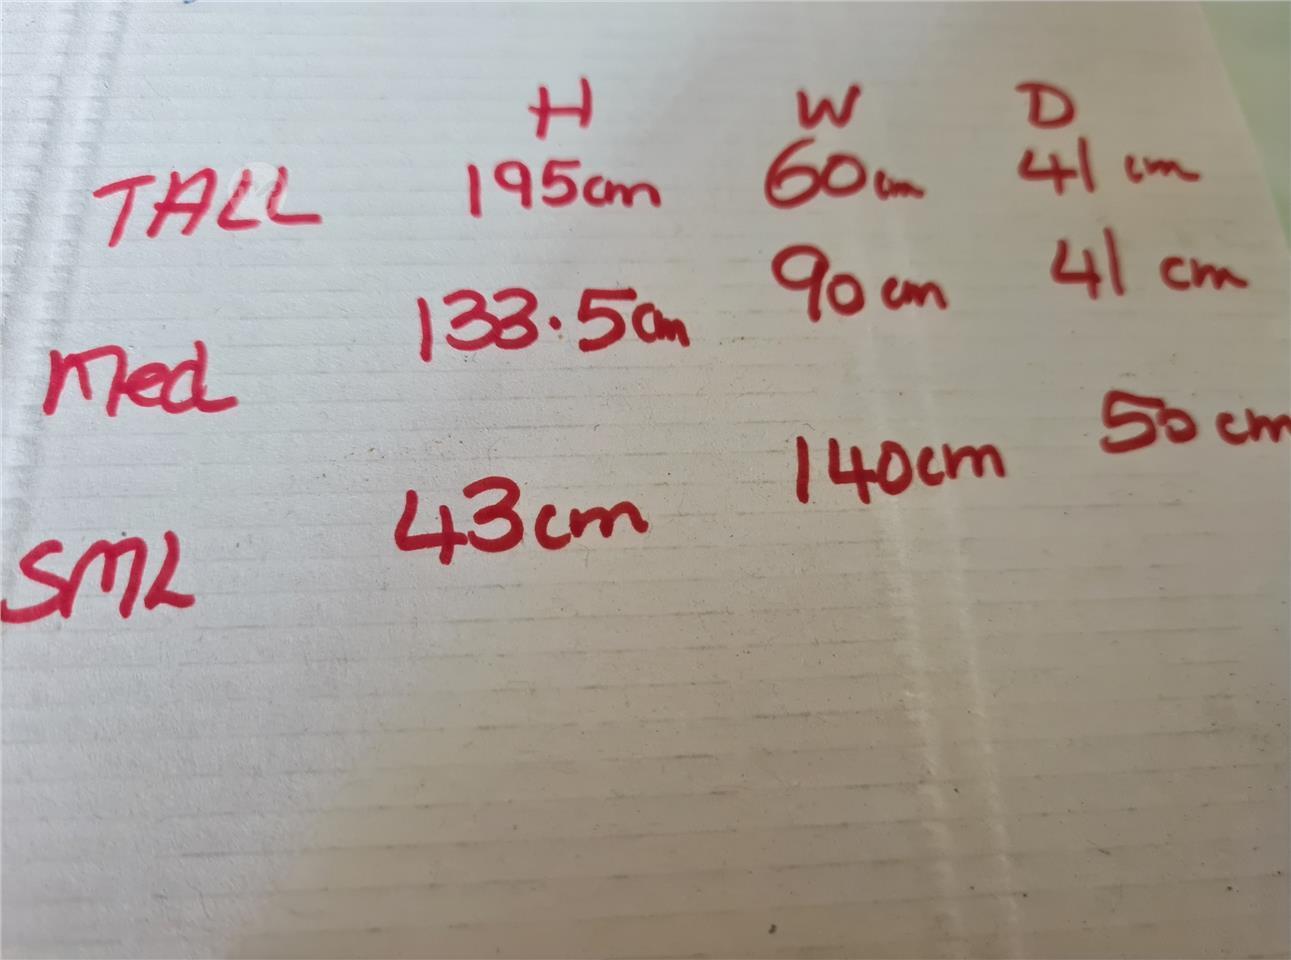 H W D
TALL 195cm 60cm 41 cm
Med 133.5cm 90cm 41 cm
SML 43cm 140cm 50cm